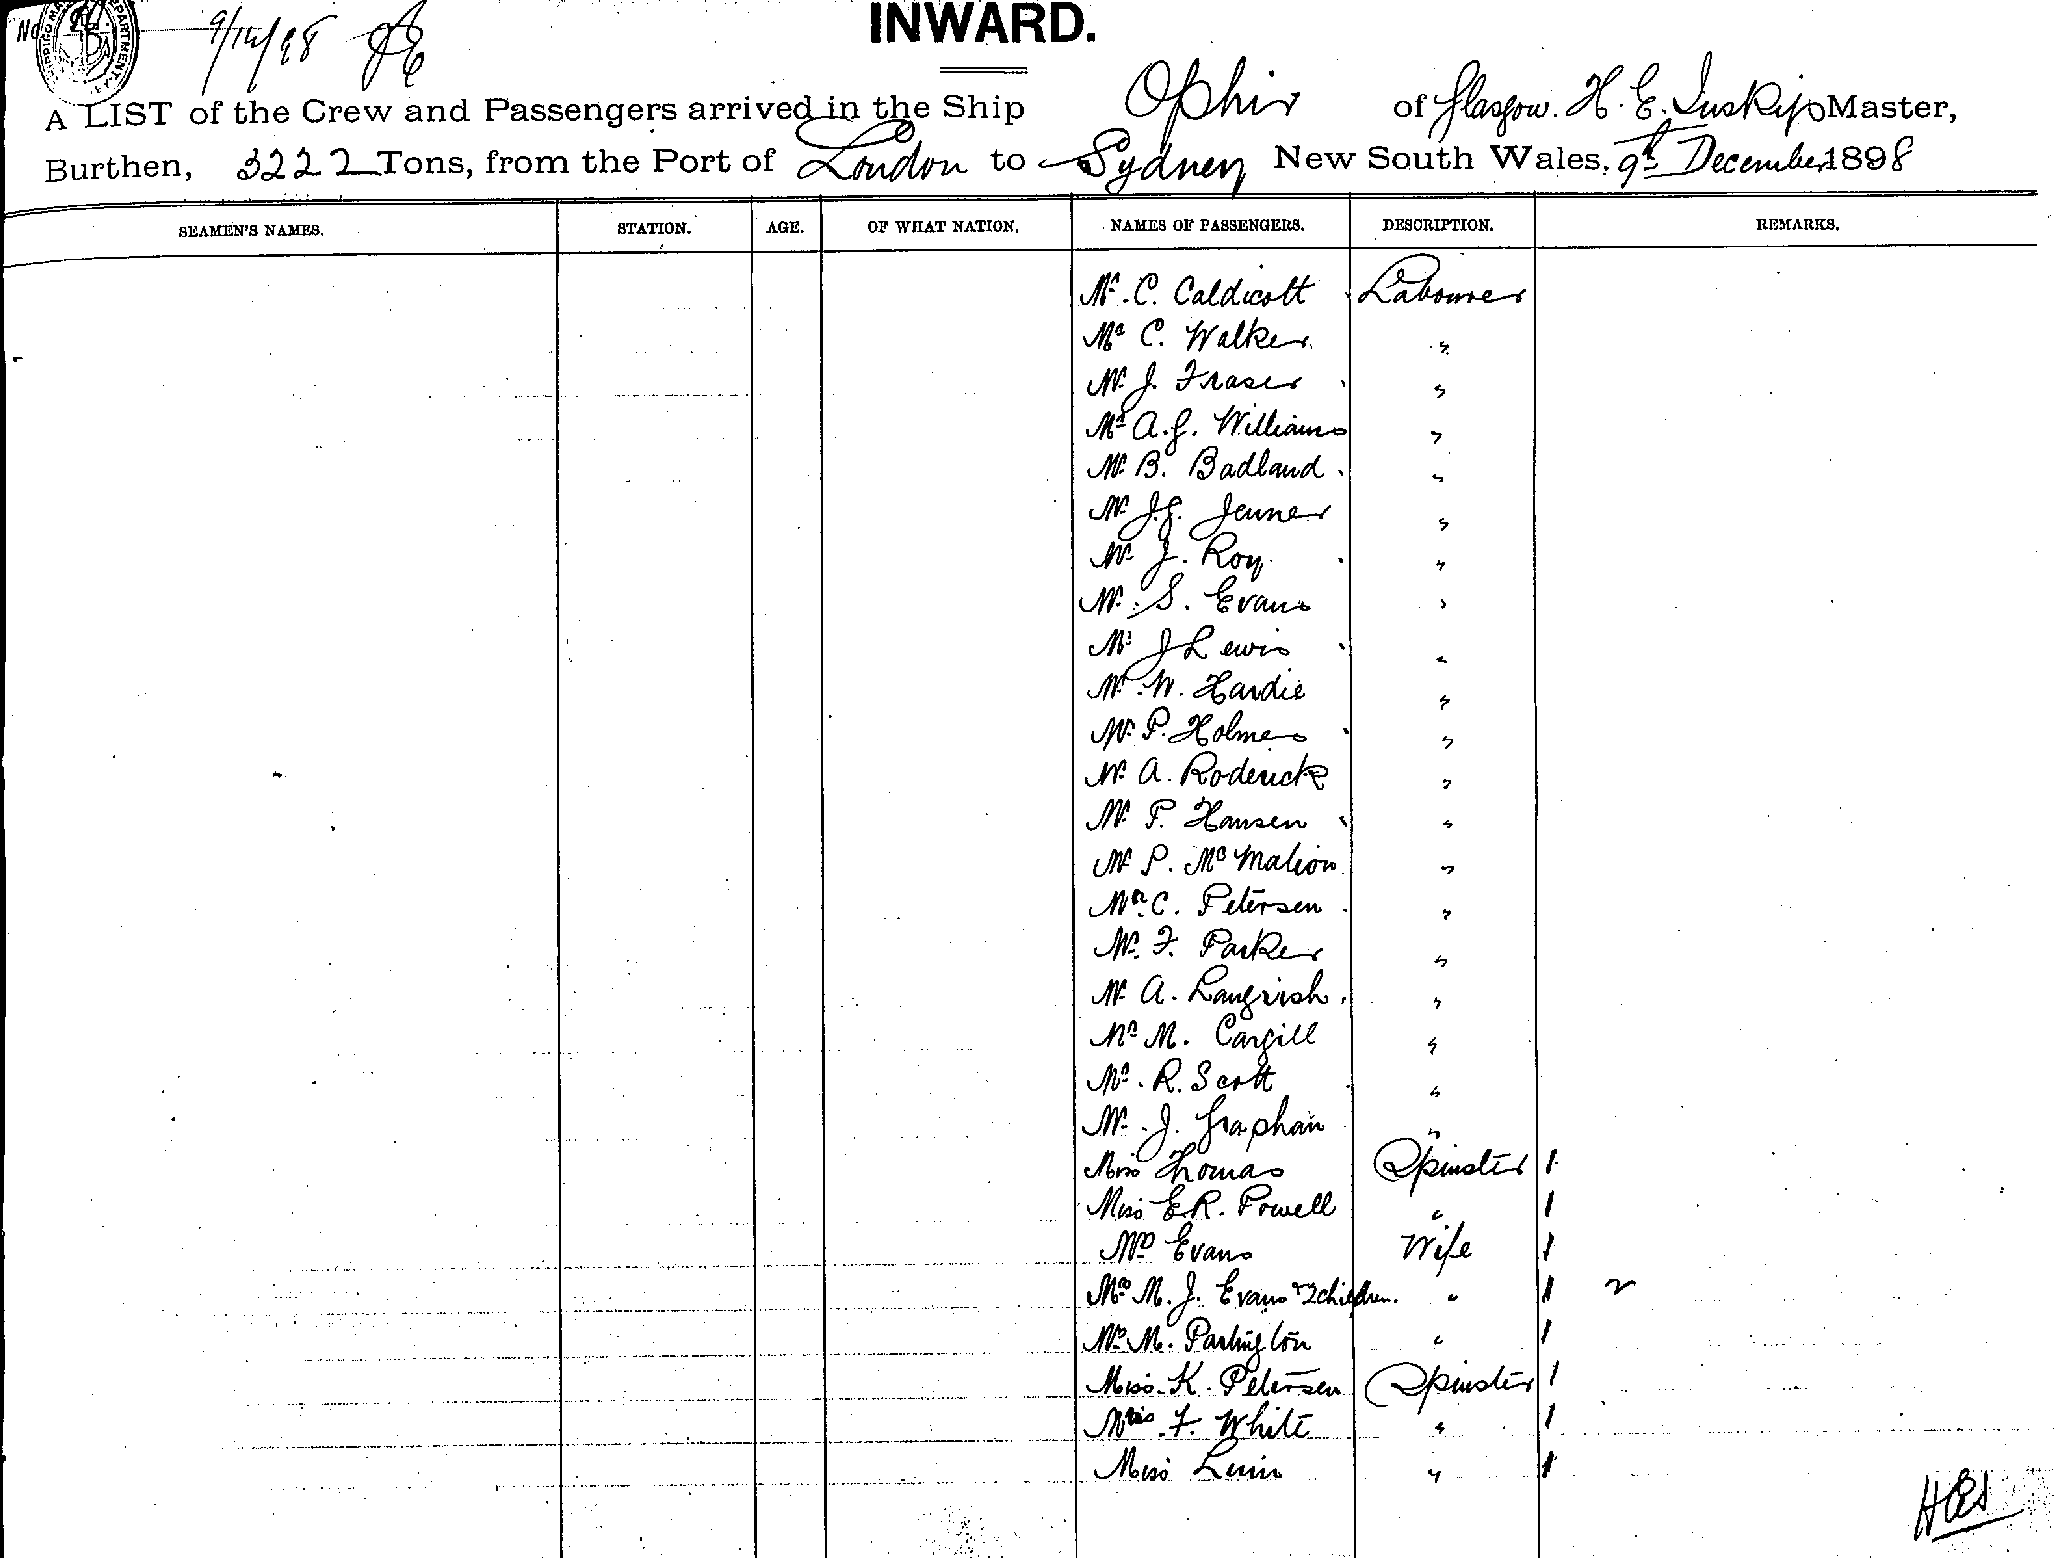 No
9/12/98
INWARD.
A LIST of the Crew and Passengers arrived in the Ship Ophir of Glasgow. H. E. Inskip Master,
Burthen, 3222 Tons, from the Port of London to Sydney New South Wales, 9th December 1898
SEAMEN'S NAMES. STATION. AGE. OF WHAT NATION. NAMES OF PASSENGERS. DESCRIPTION. REMARKS.
Mr. C. Caldicott Labourer
Mr C. Walker "
Mr J. Fraser "
Mr A.G. Williams "
Mr B. Badland "
Mr J.G. Jenner "
Mr J. Roy "
Mr. S. Evans "
Mr J Lewis "
Mr. W. Hardie "
Mr. P. Holmes "
Mr. A. Roderick "
Mr. P. Hansen "
Mr P. McMahon "
Mr. C. Petersen "
Mr. F. Parker "
Mr A. Langrish "
Mr M. Cargill "
Mr. R. Scott "
Mr. J. Graphan "
Miss Thomas Spinster 1
Miss E R. Powell " 1
Mrs Evans Wife 1
Mrs M. J. Evans & 2 children. " 1 2
Mrs M. Partington " 1
Miss K. Petersen Spinster 1
Miss F. White " 1
Miss " 1
HEI